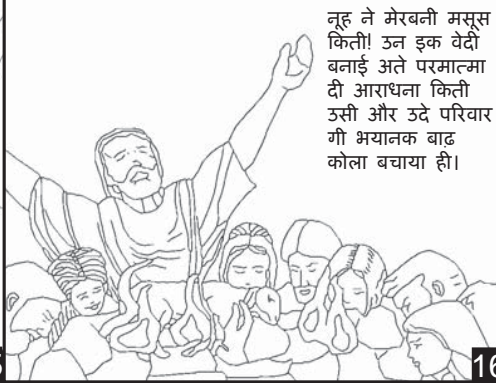 नूह ने मेरबनी मसूस
किती! उन इक वेदी
बनाई अते परमात्मा
दी आराधना किती
उसी और उदे परिवार
गी भयानक बाढ़
कोला बचाया ही।
16